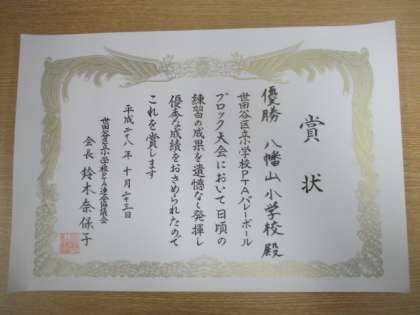 賞状
優勝 八幡山小学校殿
世田谷区立小学校PTAバレーボール
ブロック大会において日頃の
練習の成果を遺憾なく発揮し
優秀な成績をおさめられたので
これを賞します
平成二十八年十月二十三日
世田谷区立小学校PTA連合協議会
会長 鈴木奈保子